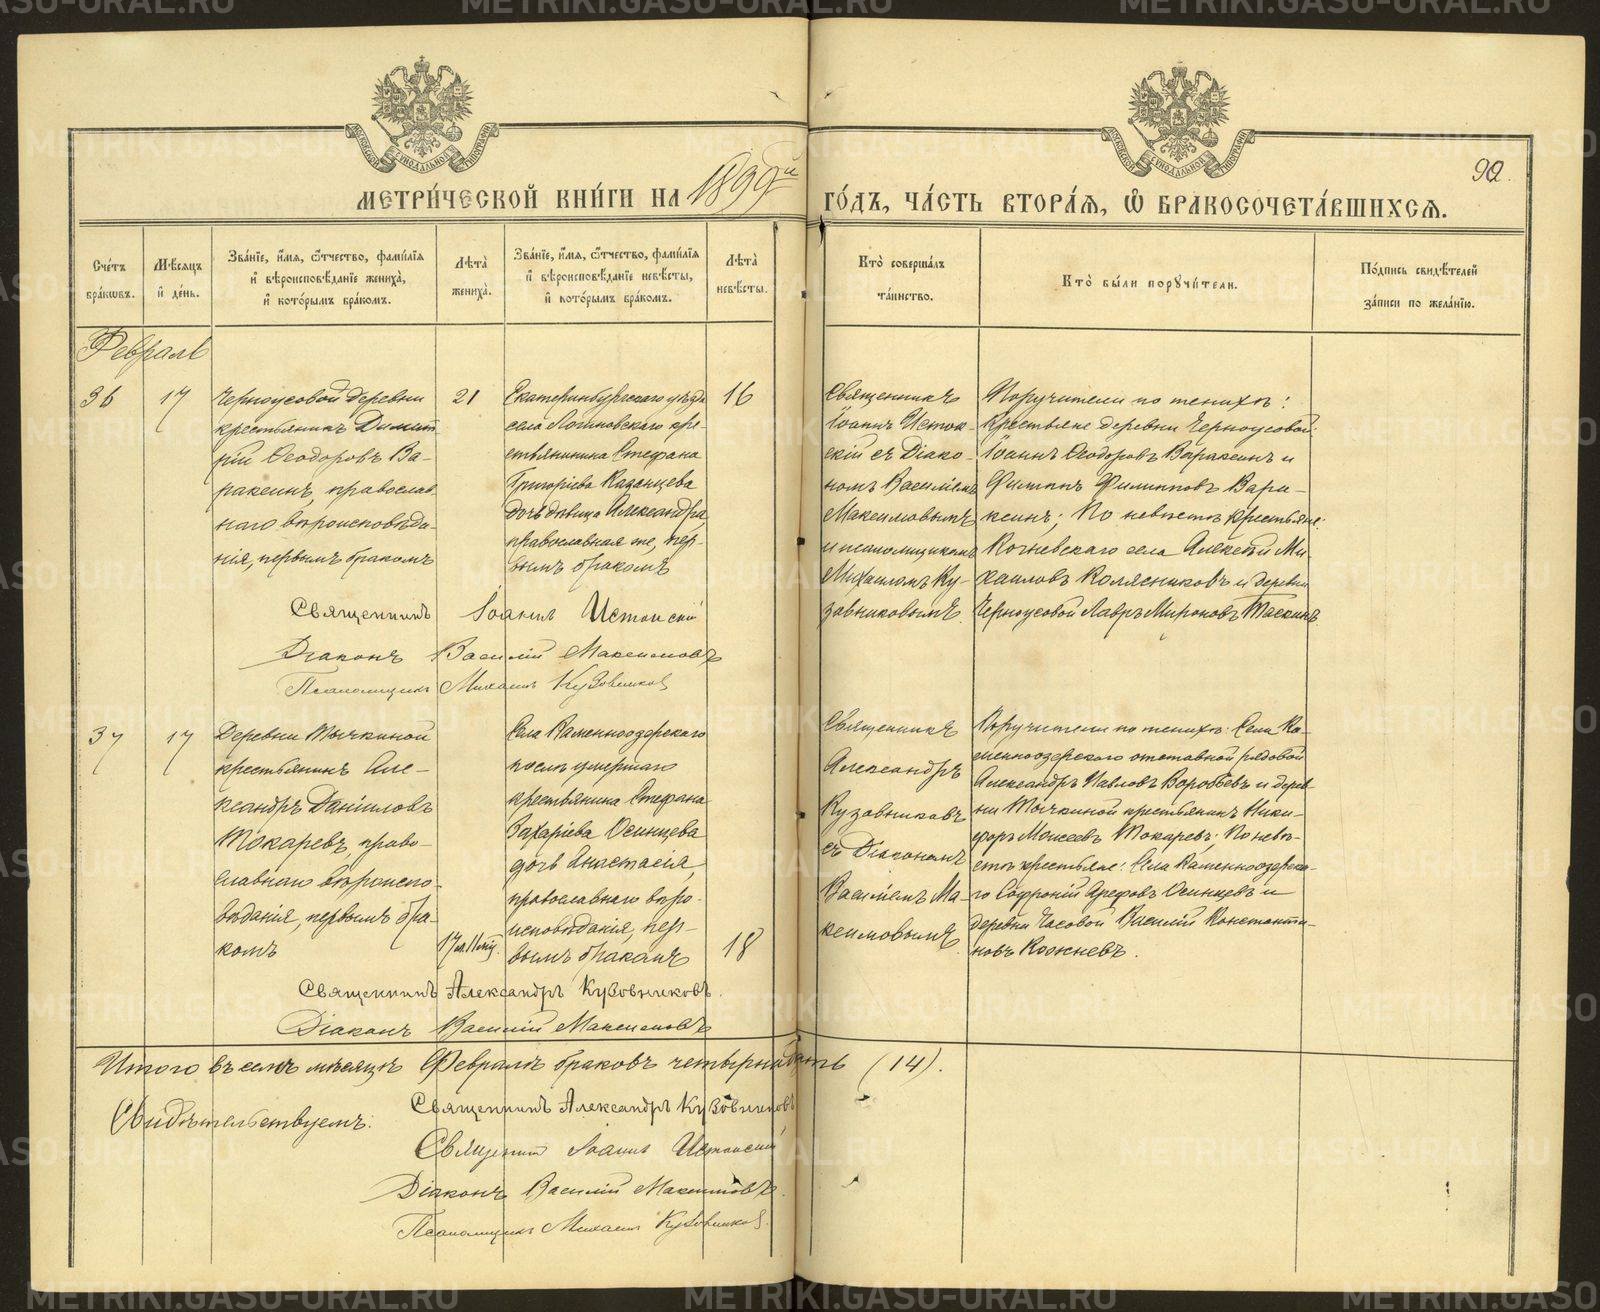 МЕТРИ́ЧЕСКОЙ КНИ́ГИ НА 1899й ГО́ДЪ, ЧА́СТЬ ВТОРА́Ѧ, Ѡ҆ БРАКОСОЧЕТА́ВШИХСѦ.
90.
Сче́тъ бра́кѡвъ.
Мѣ́сѧцъ и҆ де́нь.
Зва́нїе, и҆́мѧ, ѻ҆́тчество, фами́лїѧ и҆ вѣроисповѣ́данїе жениха̀, и҆ кото́рымъ бра́комъ.
Лѣ́та жениха̀.
Зва́нїе, и҆́мѧ, ѻ҆́тчество, фами́лїѧ и҆ вѣроисповѣ́данїе невѣ́сты, и҆ кото́рымъ бра́комъ.
Лѣ́та невѣ́сты.
Кто̀ соверша́лъ та́инство.
Кто̀ бы́ли порꙋчи́тели.
По́дпись свидѣ́телей за́писи по жела́нїю.
Февраль
36
17
Черноусовой деревни
крестьянинъ Димит-
рій Ѳеодоровъ Ва-
раксинъ, православ-
наго вѣроисповѣда-
нія, первымъ бракомъ
21
Екатеринбургскаго уѣзда
села Логиновскаго кре-
стьянинина Стефана
Григоріева Казанцева
дочь дѣвица Александра,
православная же, пер-
вымъ бракомъ
16
Священникъ
Іоаннъ Исток-
скій съ Діако-
номъ Василіемъ
Максимовымъ
и псаломщикомъ
Михаиломъ Ку-
зовниковымъ.
Поручители по женихѣ:
Крестьяне деревни Черноусовой
Іоаннъ Ѳеодоровъ Вараксинъ и
Филиппъ Филипповъ Вара-
ксинъ; По невѣстѣ крестьяне:
Кочневскаго села Алексѣй Ми-
хаиловъ Колясниковъ и деревни
Черноусовой Лавръ Мироновъ Таскинъ.
Священникъ Іоаннъ Истокскій
Діаконъ Василій Максимовъ
Псаломщикъ Михаилъ Кузовниковъ
37
17
Деревни Тычкиной
крестьянинъ Але-
ксандръ Даніиловъ
Токаревъ, право-
славнаго вѣроиспо-
вѣданія, первымъ бра-
комъ
Села Каменноозерскаго
послѣ умершаго
крестьянина Стефана
Захаріева Осинцева
дочь Анастасія,
православнаго вѣро-
исповѣданія, пер-
вымъ бракомъ
18
Священникъ
Александръ
Кузовниковъ
съ Діакономъ
Василіемъ Ма-
ксимовымъ
Поручители по женихѣ: Села Ка-
менноозерскаго отставной рядовой
Александръ Павловъ Воробьевъ и дерев-
ни Тычкиной крестьянинъ Ники-
форъ Моисеевъ Токаревъ; По невѣ-
стѣ крестьяне: Села Каменноозерска-
го Софроній Арефовъ Осинцевъ и
деревни Часовой Василій Константи-
новъ Кожневъ.
Священникъ Александръ Кузовниковъ.
Діаконъ Василій Максимовъ
Итого въ семъ мѣсяцѣ Февралѣ браковъ четырнадцать (14).
Свидѣтельствуемъ:
Священникъ Александръ Кузовниковъ
Священникъ Іоаннъ Истокскій
Діаконъ Василій Максимовъ.
Псаломщикъ Михаилъ Кузовниковъ.
METRIKI.GASO-URAL.RU